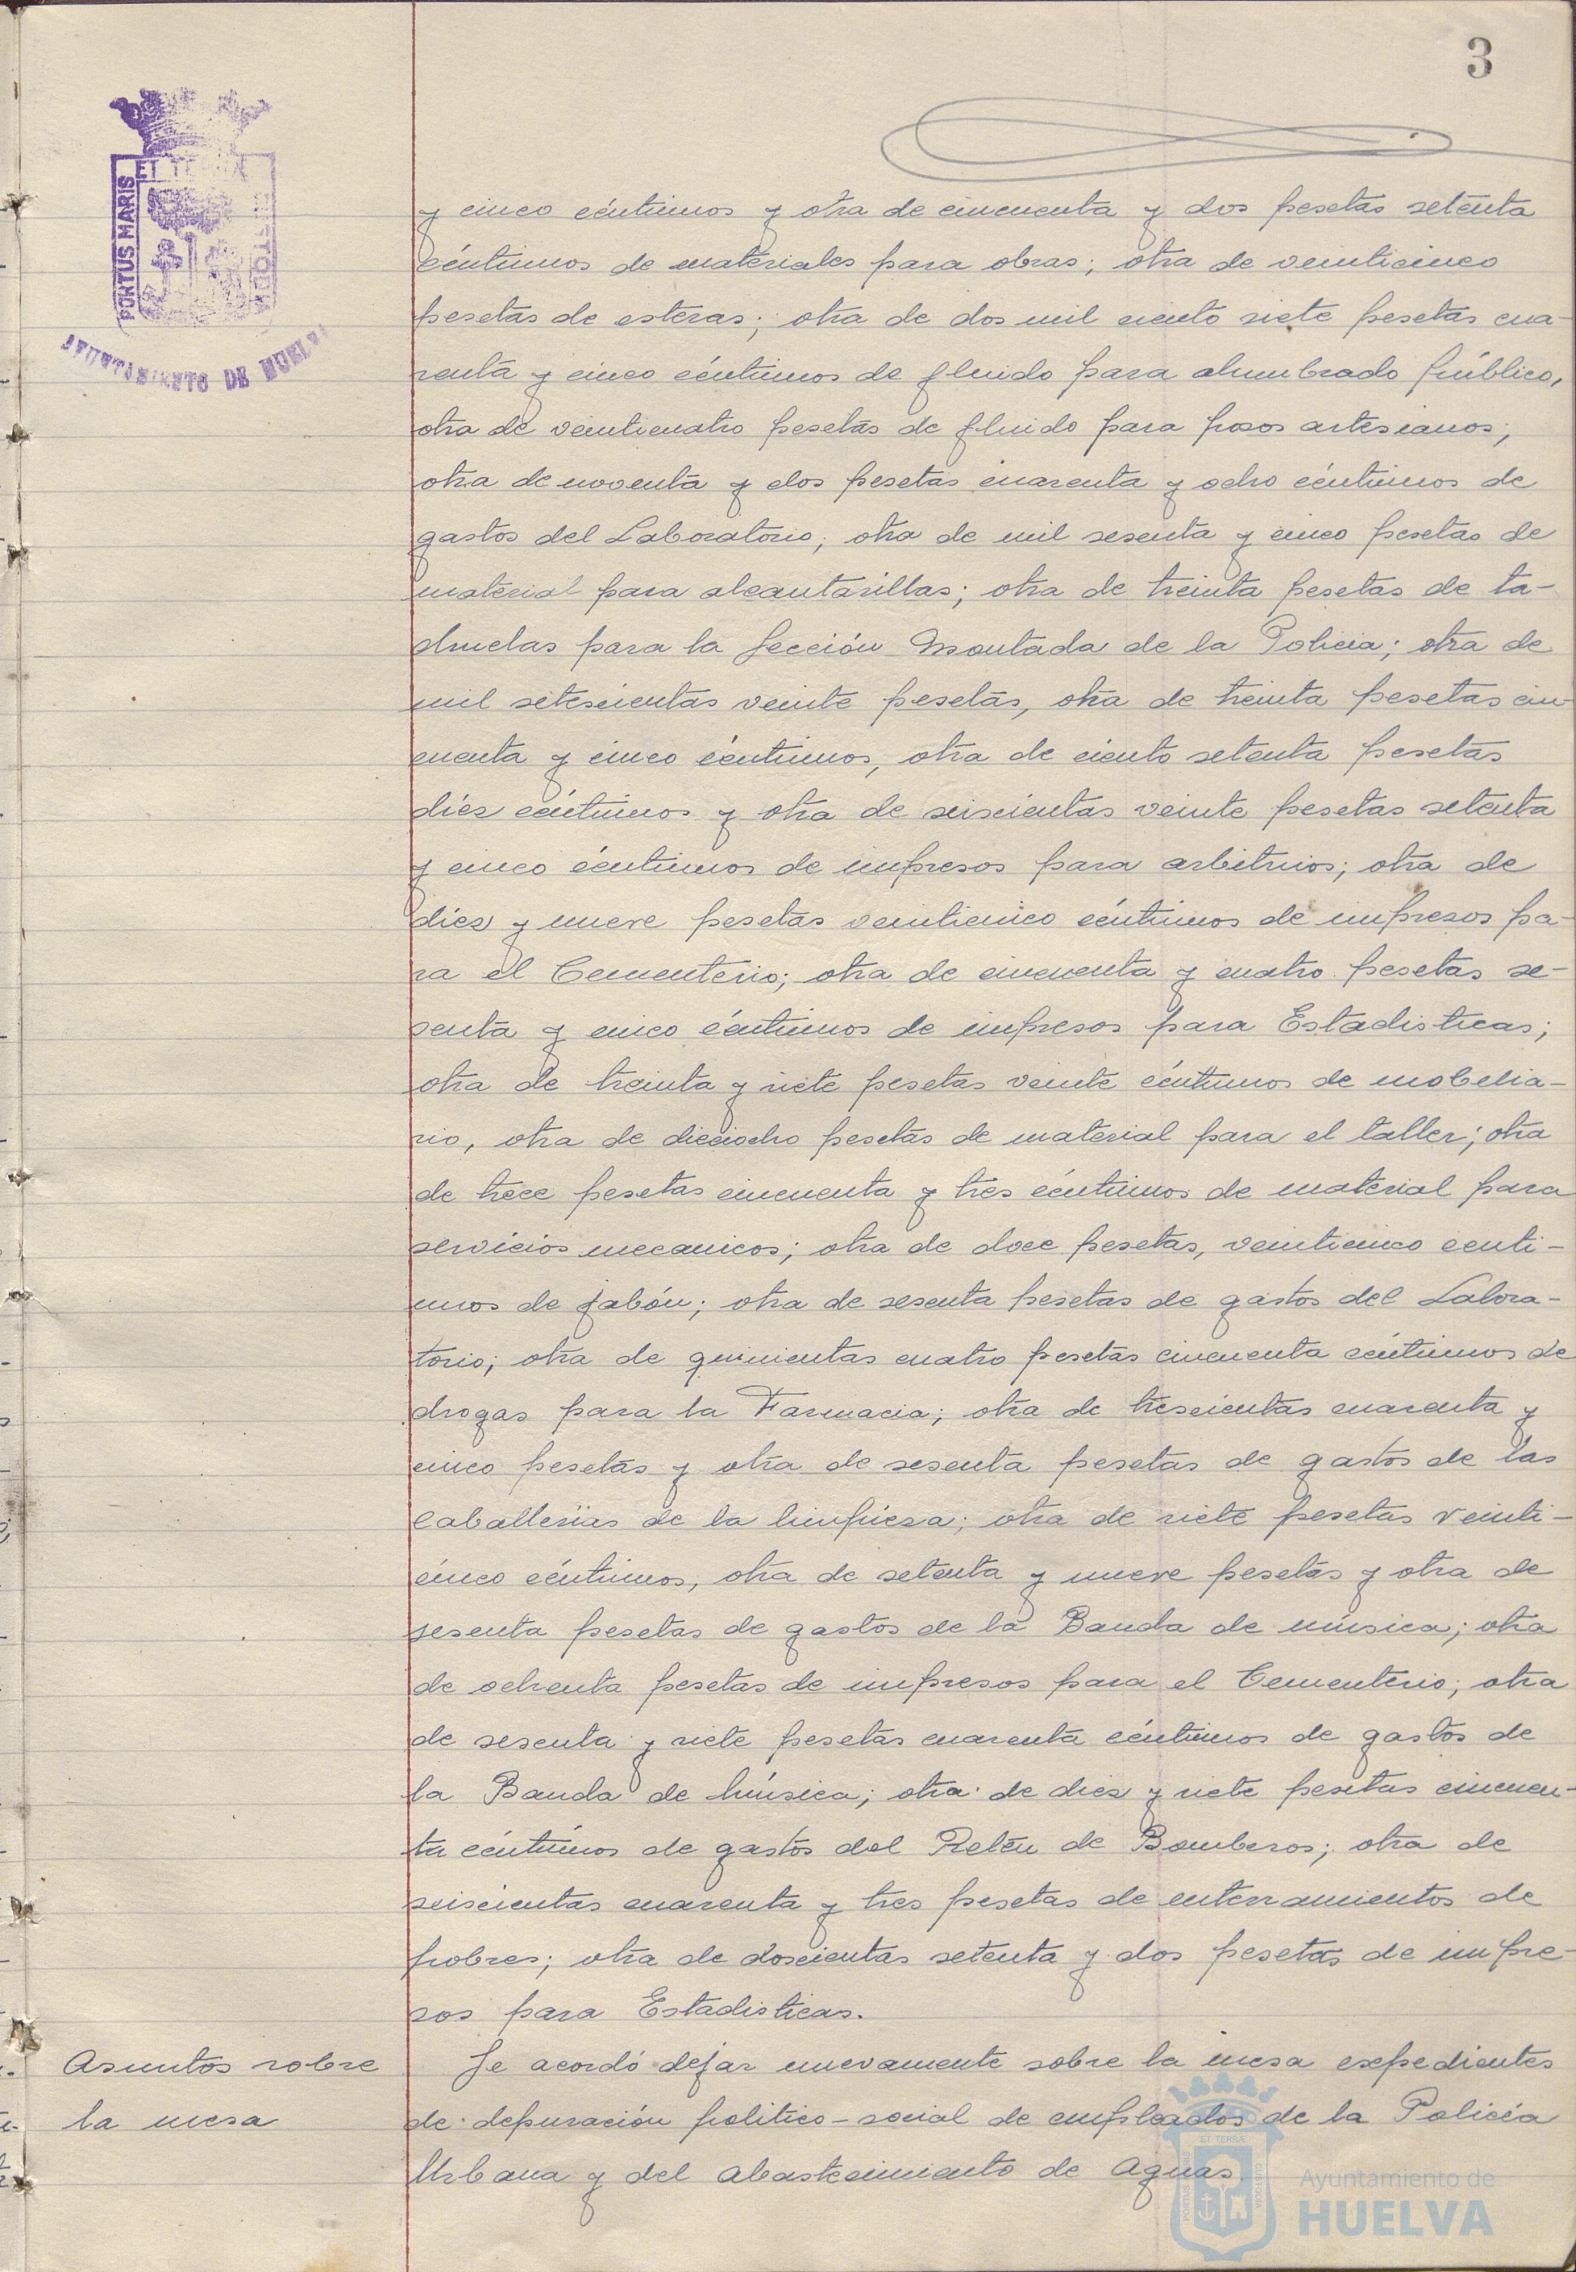 3
ET TERRÆ
PORTUS MARIS
CUSTODIA
AYUNTAMIENTO DE HUELVA
y cinco céntimos y otra de cincuenta y dos pesetas setenta
céntimos de materiales para obras; otra de veinticinco
pesetas de esteras; otra de dos mil ciento siete pesetas cua-
renta y cinco céntimos de fluido para alumbrado público,
otra de veinticuatro pesetas de fluido para pozos artesianos;
otra de noventa y dos pesetas cuarenta y ocho céntimos de
gastos del Laboratorio; otra de mil sesenta y cinco pesetas de
material para alcantarillas; otra de treinta pesetas de ta-
chuelas para la Sección Montada de la Policia; otra de
mil setescientas veinte pesetas, otra de treinta pesetas cin-
cuenta y cinco céntimos, otra de ciento setenta pesetas
diez céntimos y otra de seiscientas veinte pesetas setenta
y cinco céntimos de impresos para arbitrios; otra de
diez y nueve pesetas veinticinco céntimos de impresos pa-
ra el Cementerio; otra de cincuenta y cuatro pesetas se-
senta y cinco céntimos de impresos para Estadisticas;
otra de treinta y siete pesetas veinte céntimos de mobilia-
rio, otra de dieciocho pesetas de material para el taller; otra
de trece pesetas cincuenta y tres céntimos de material para
servicios mecanicos; otra de doce pesetas, veinticinco centi-
mos de jabón; otra de sesenta pesetas de gastos del Labora-
torio; otra de quinientas cuatro pesetas cincuenta céntimos de
drogas para la Farmacia; otra de trescientas cuarenta y
cinco pesetas y otra de sesenta pesetas de gastos de las
caballerias de la limpieza; otra de siete pesetas veinti-
cinco céntimos, otra de setenta y nueve pesetas y otra de
sesenta pesetas de gastos de la Banda de música; otra
de ochenta pesetas de impresos para el Cementerio; otra
de sesenta y siete pesetas cuarenta céntimos de gastos de
la Banda de Música; otra de diez y siete pesetas cincuen-
ta céntimos de gastos del Retén de Bomberos; otra de
seiscientas cuarenta y tres pesetas de enterramientos de
pobres; otra de doscientas setenta y dos pesetas de impre-
sos para Estadisticas.
Asuntos sobre
la mesa
Se acordó dejar nuevamente sobre la mesa expedientes
de depuración politico-social de empleados de la Policía
Urbana y del Abastecimiento de Aguas.
Ayuntamiento de
HUELVA